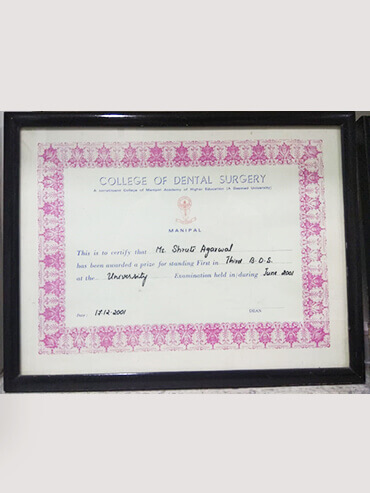 COLLEGE OF DENTAL SURGERY
A constituent College of Manipal Academy of Higher Education (A Deemed University)
MANIPAL
This is to certify that Ms. Shruti Agarwal
has been awarded a prize for standing First in Third B.D.S.
at the University Examination held in/during June 2001
Date: 17.12.2001 DEAN